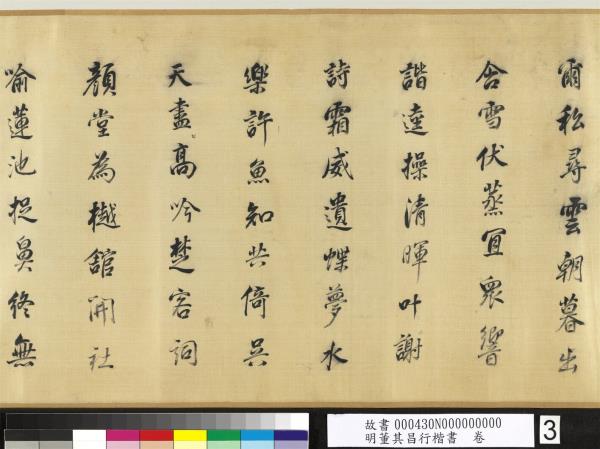 爾私尋雲朝暮出
含雪伏蒸宜眾響
諧達操清暉叶謝
詩霜威遺蝶夢水
樂許魚知共倚吳
天畫高吟楚客詞
顏堂為樾館開社
喻蓮池捉鼻終無
故書 000430N000000000
明董其昌行楷書 卷
3